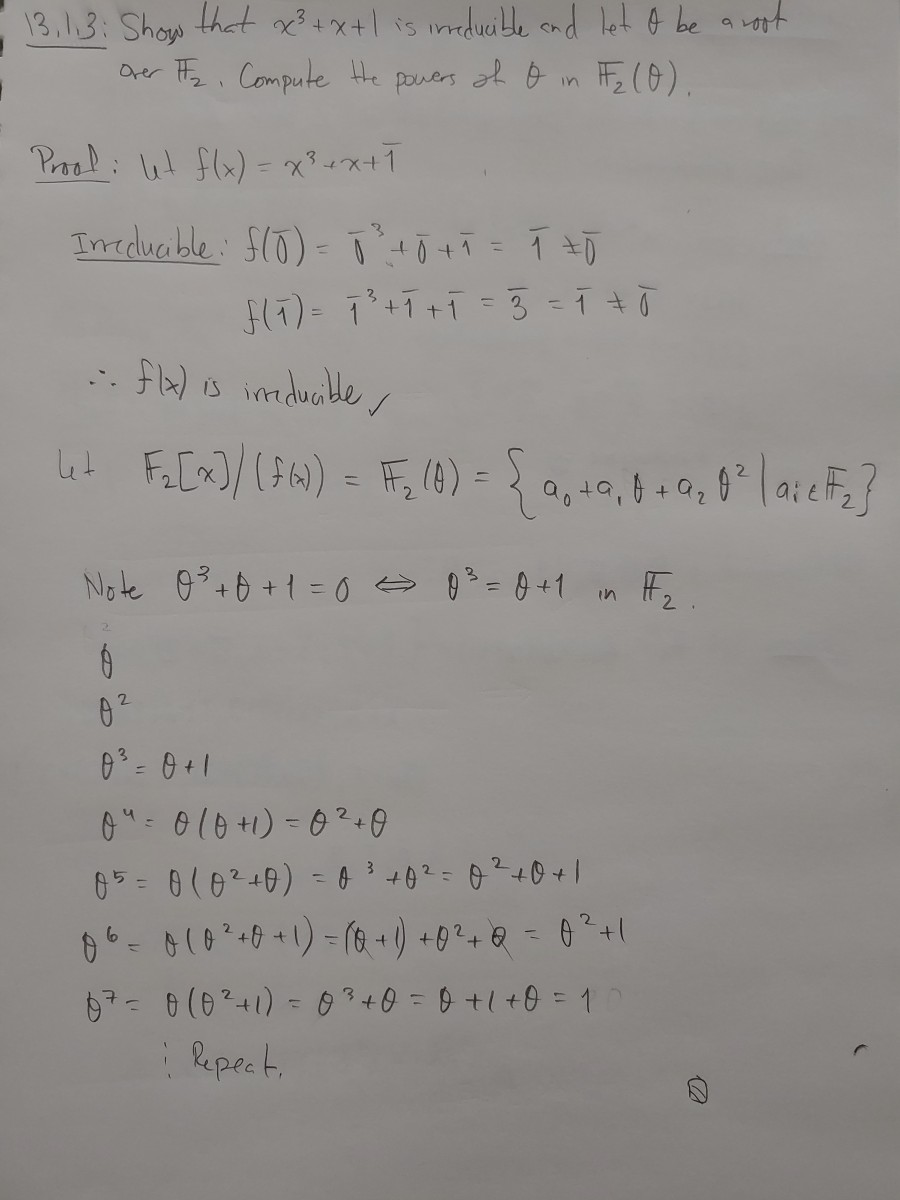 13.1.3: Show that x³+x+1 is irreducible and let θ be a root
over 𝔽₂. Compute the powers of θ in 𝔽₂(θ).
Proof: let f(x) = x³+x+1̄
Irreducible: f(0̄) = 0̄³+0̄+1̄ = 1̄ ≠ 0̄
f(1̄) = 1̄³+1̄+1̄ = 3̄ = 1̄ ≠ 0̄
∴ f(x) is irreducible ✓
let 𝔽₂[x]/(f(x)) = 𝔽₂(θ) = { a₀+a₁θ+a₂θ² | aᵢ ∈ 𝔽₂}
Note θ³+θ+1 = 0 ⇔ θ³ = θ+1 in 𝔽₂.
θ
θ²
θ³ = θ+1
θ⁴ = θ(θ+1) = θ²+θ
θ⁵ = θ(θ²+θ) = θ³+θ² = θ²+θ+1
θ⁶ = θ(θ²+θ+1) = (θ+1)+θ²+θ = θ²+1
θ⁷ = θ(θ²+1) = θ³+θ = θ+1+θ = 1
⋮ Repeat.